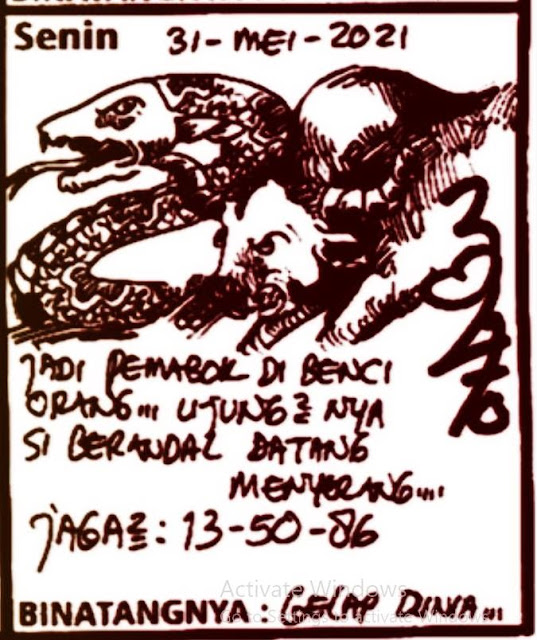 Senin 31-MEI-2021
JADI PEMABOK DI BENCI
ORANG... UJUNG2 NYA
SI BERANDAL DATANG
MENYERANG....
JAGA2: 13-50-86
Activate Windows
Go to Settings to activate Windows.
BINATANGNYA : GELAP DUNIA...